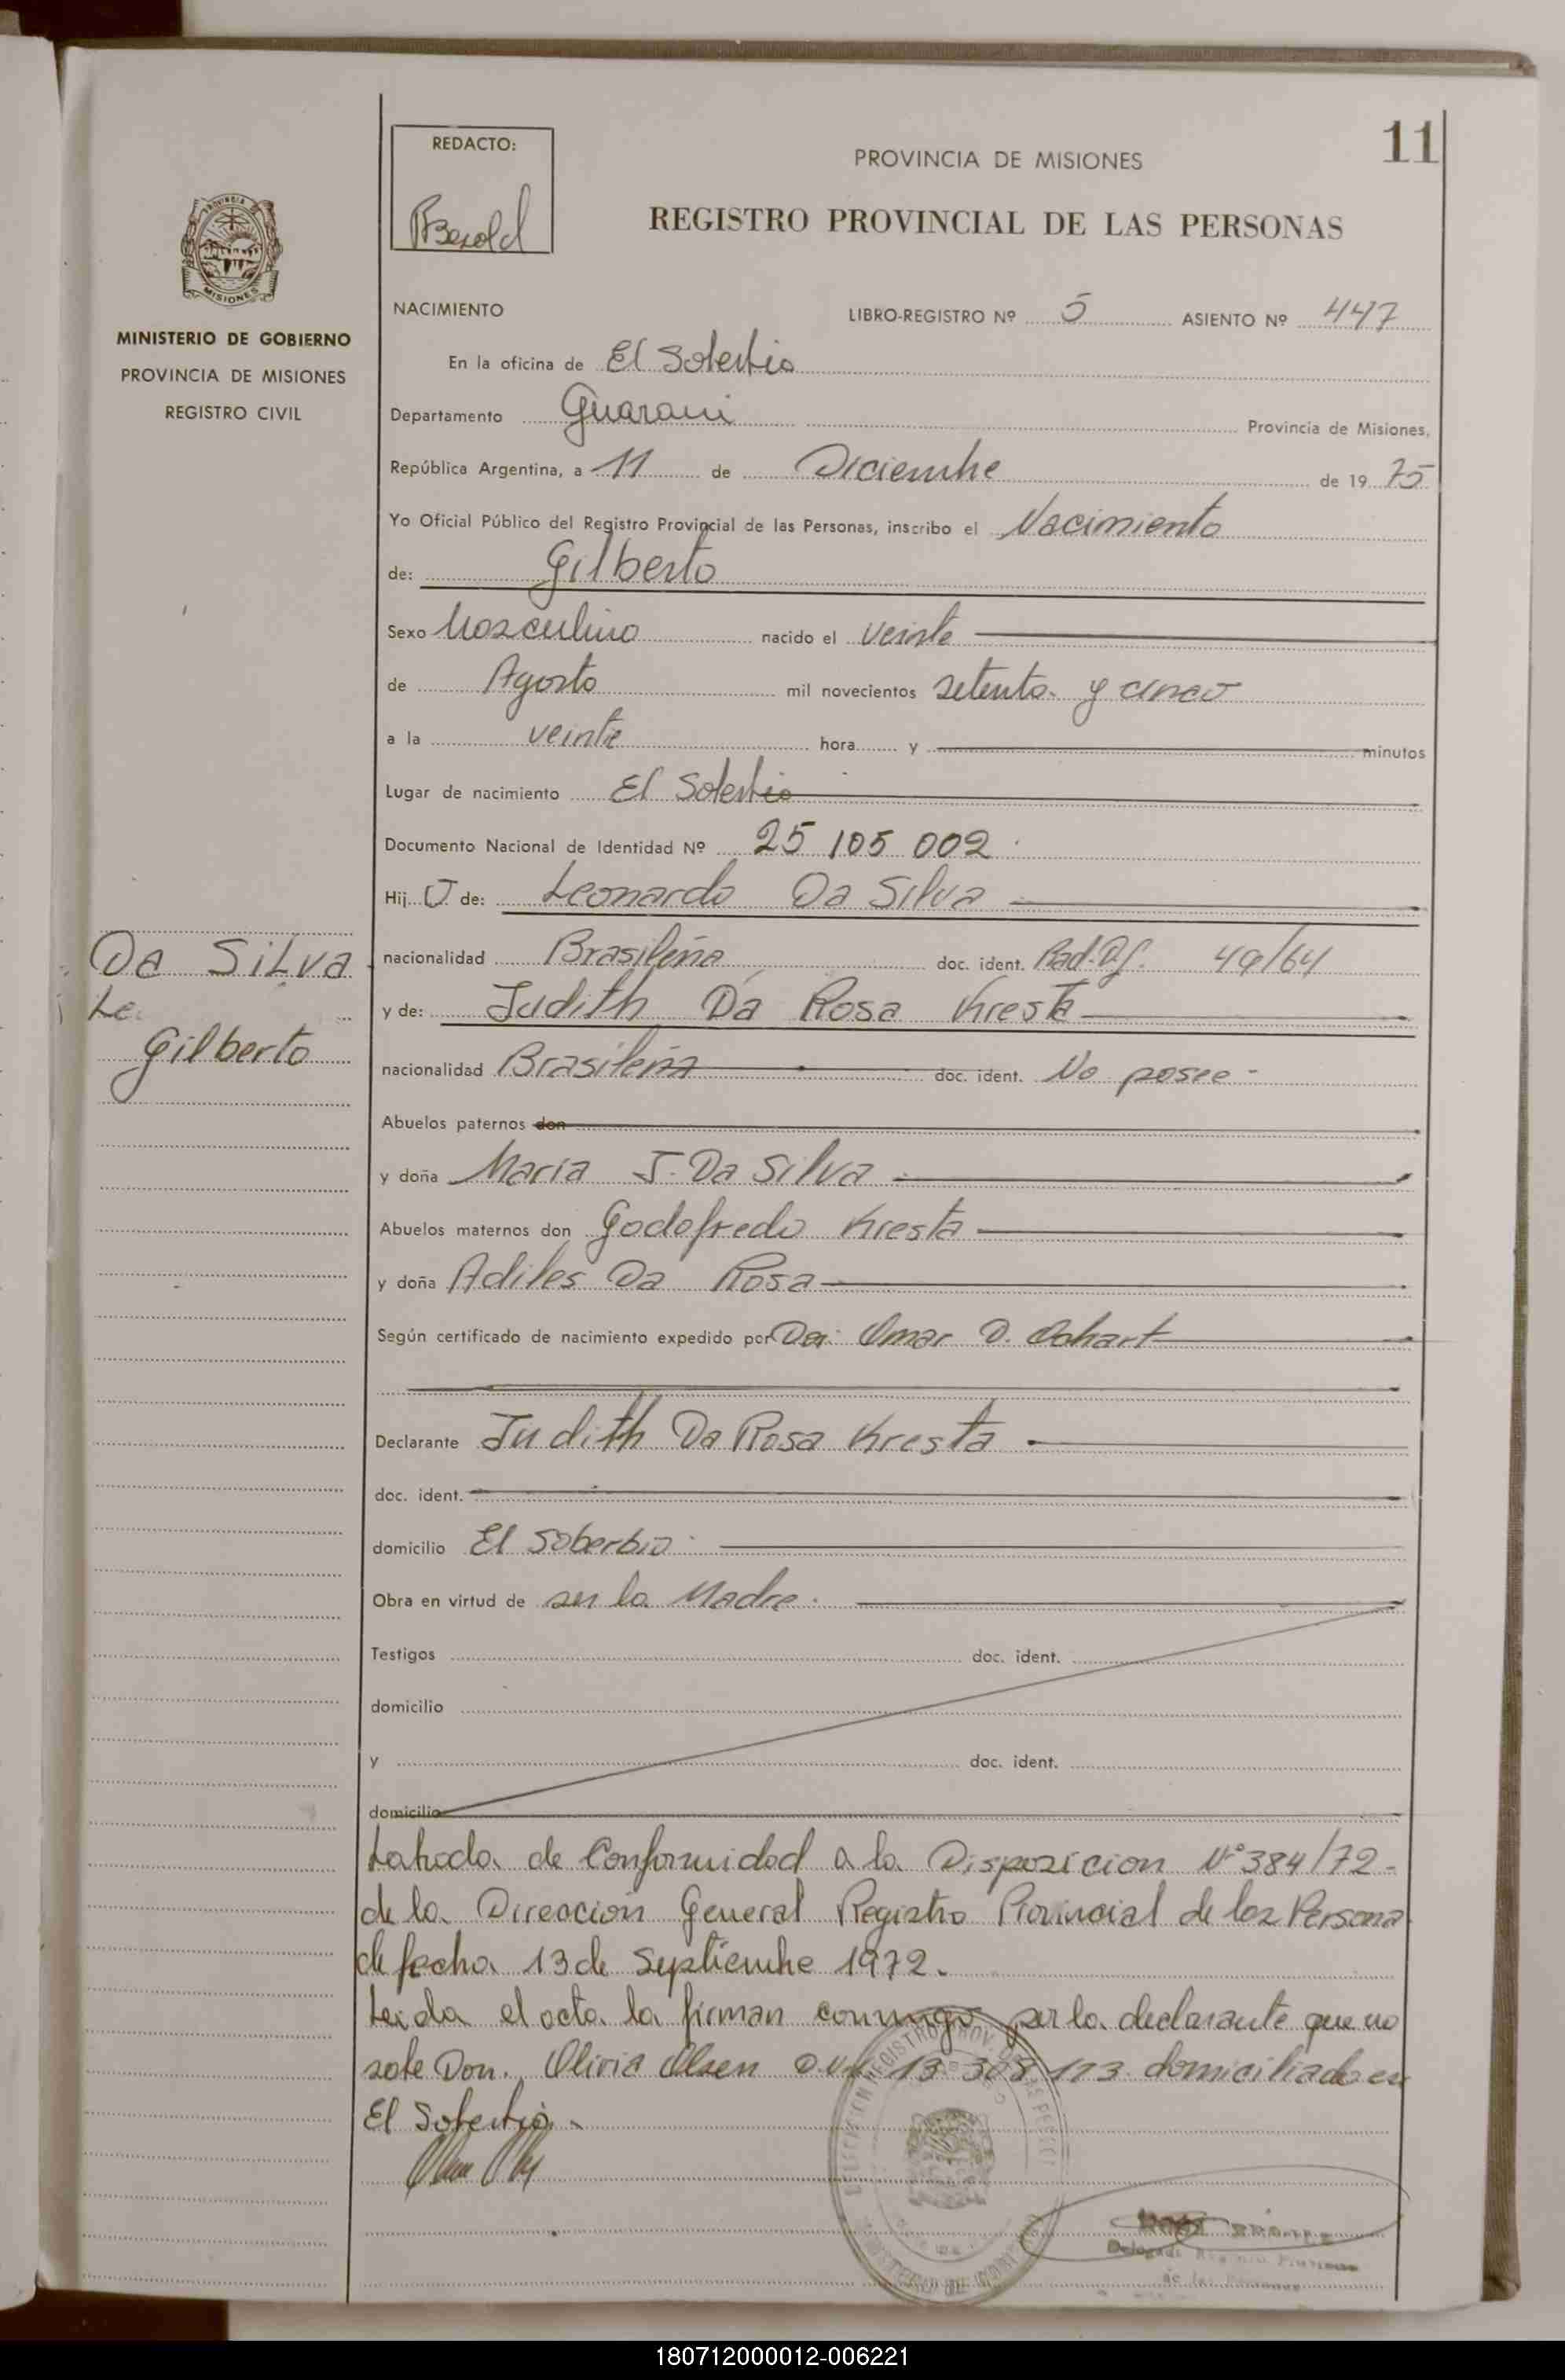 11
REDACTO:
PROVINCIA DE MISIONES
REGISTRO PROVINCIAL DE LAS PERSONAS
MISIONES
MINISTERIO DE GOBIERNO
PROVINCIA DE MISIONES
REGISTRO CIVIL
NACIMIENTO LIBRO-REGISTRO Nº 5 ASIENTO Nº 447
En la oficina de El Soberbio
Departamento Guarani Provincia de Misiones,
República Argentina, a 11 de Diciembre de 19 75
Yo Oficial Público del Registro Provincial de las Personas, inscribo el Nacimiento
de: Gilberto
Sexo Masculino nacido el veinte
de Agosto mil novecientos setenta y cinco
a la veinte hora y minutos
Lugar de nacimiento El Soberbio
Documento Nacional de Identidad Nº 25 105 002
Hij o de: Leonardo Da Silva
nacionalidad Brasileña doc. ident. 49/64
y de: Judith Da Rosa Kresta
nacionalidad Brasileña doc. ident. No posee -
Da Silva
Le
Gilberto
Abuelos paternos don
y doña Maria J. Da Silva
Abuelos maternos don Godofredo Kresta
y doña Adiles Da Rosa
Según certificado de nacimiento expedido por Omar D.
Declarante Judith Da Rosa Kresta
doc. ident.
domicilio El Soberbio
Obra en virtud de ser la Madre.
Testigos doc. ident.
domicilio
y doc. ident.
domicilio
Labrada de Conformidad a la Disposicion Nº 384/72-
de la Dirección General Registro Provincial de las Persona
de fecha 13 de Septiembre 1972.
Leida el acta la firman conmigo por la declarante que no
sabe Don. Olivia Olsen 13 308 113 domiciliado en
El Soberbio.
180712000012-006221